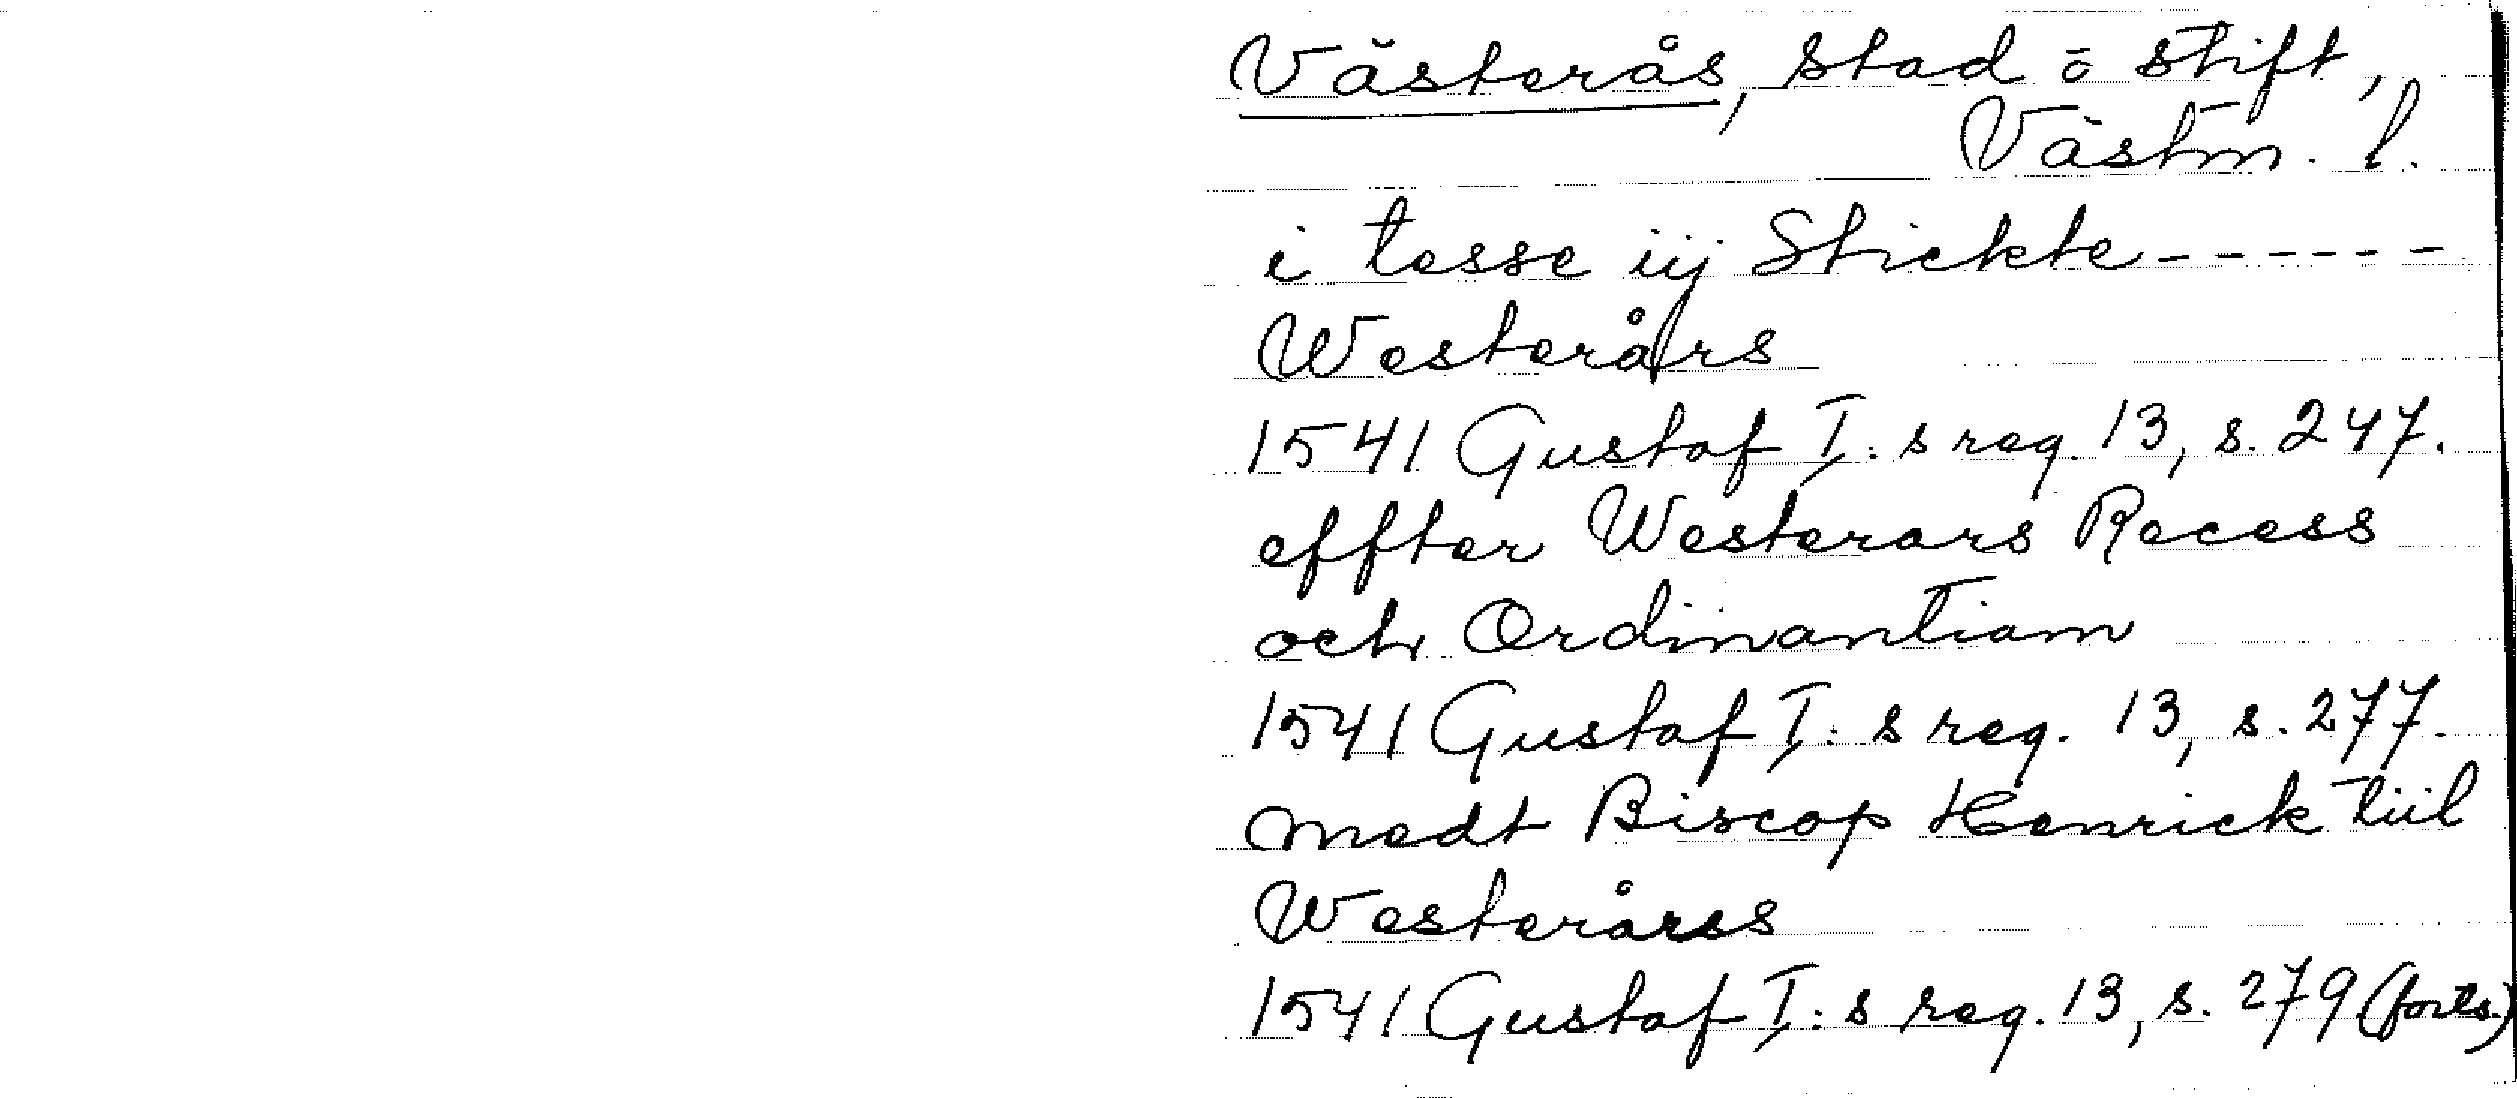 Västerås, stad o stift,
Västm. l.
i tesse iij Stickte------
Westerå/rs
1541 Gustaf I:s reg. 13, s. 247.
effter Westerars Recess
och Ordinantiam
1541 Gustaf I:s reg. 13, s. 277.
medt Biscop Henrick tiil
Westerårss
1541 Gustaf I:s reg. 13, s. 279 (forts.)